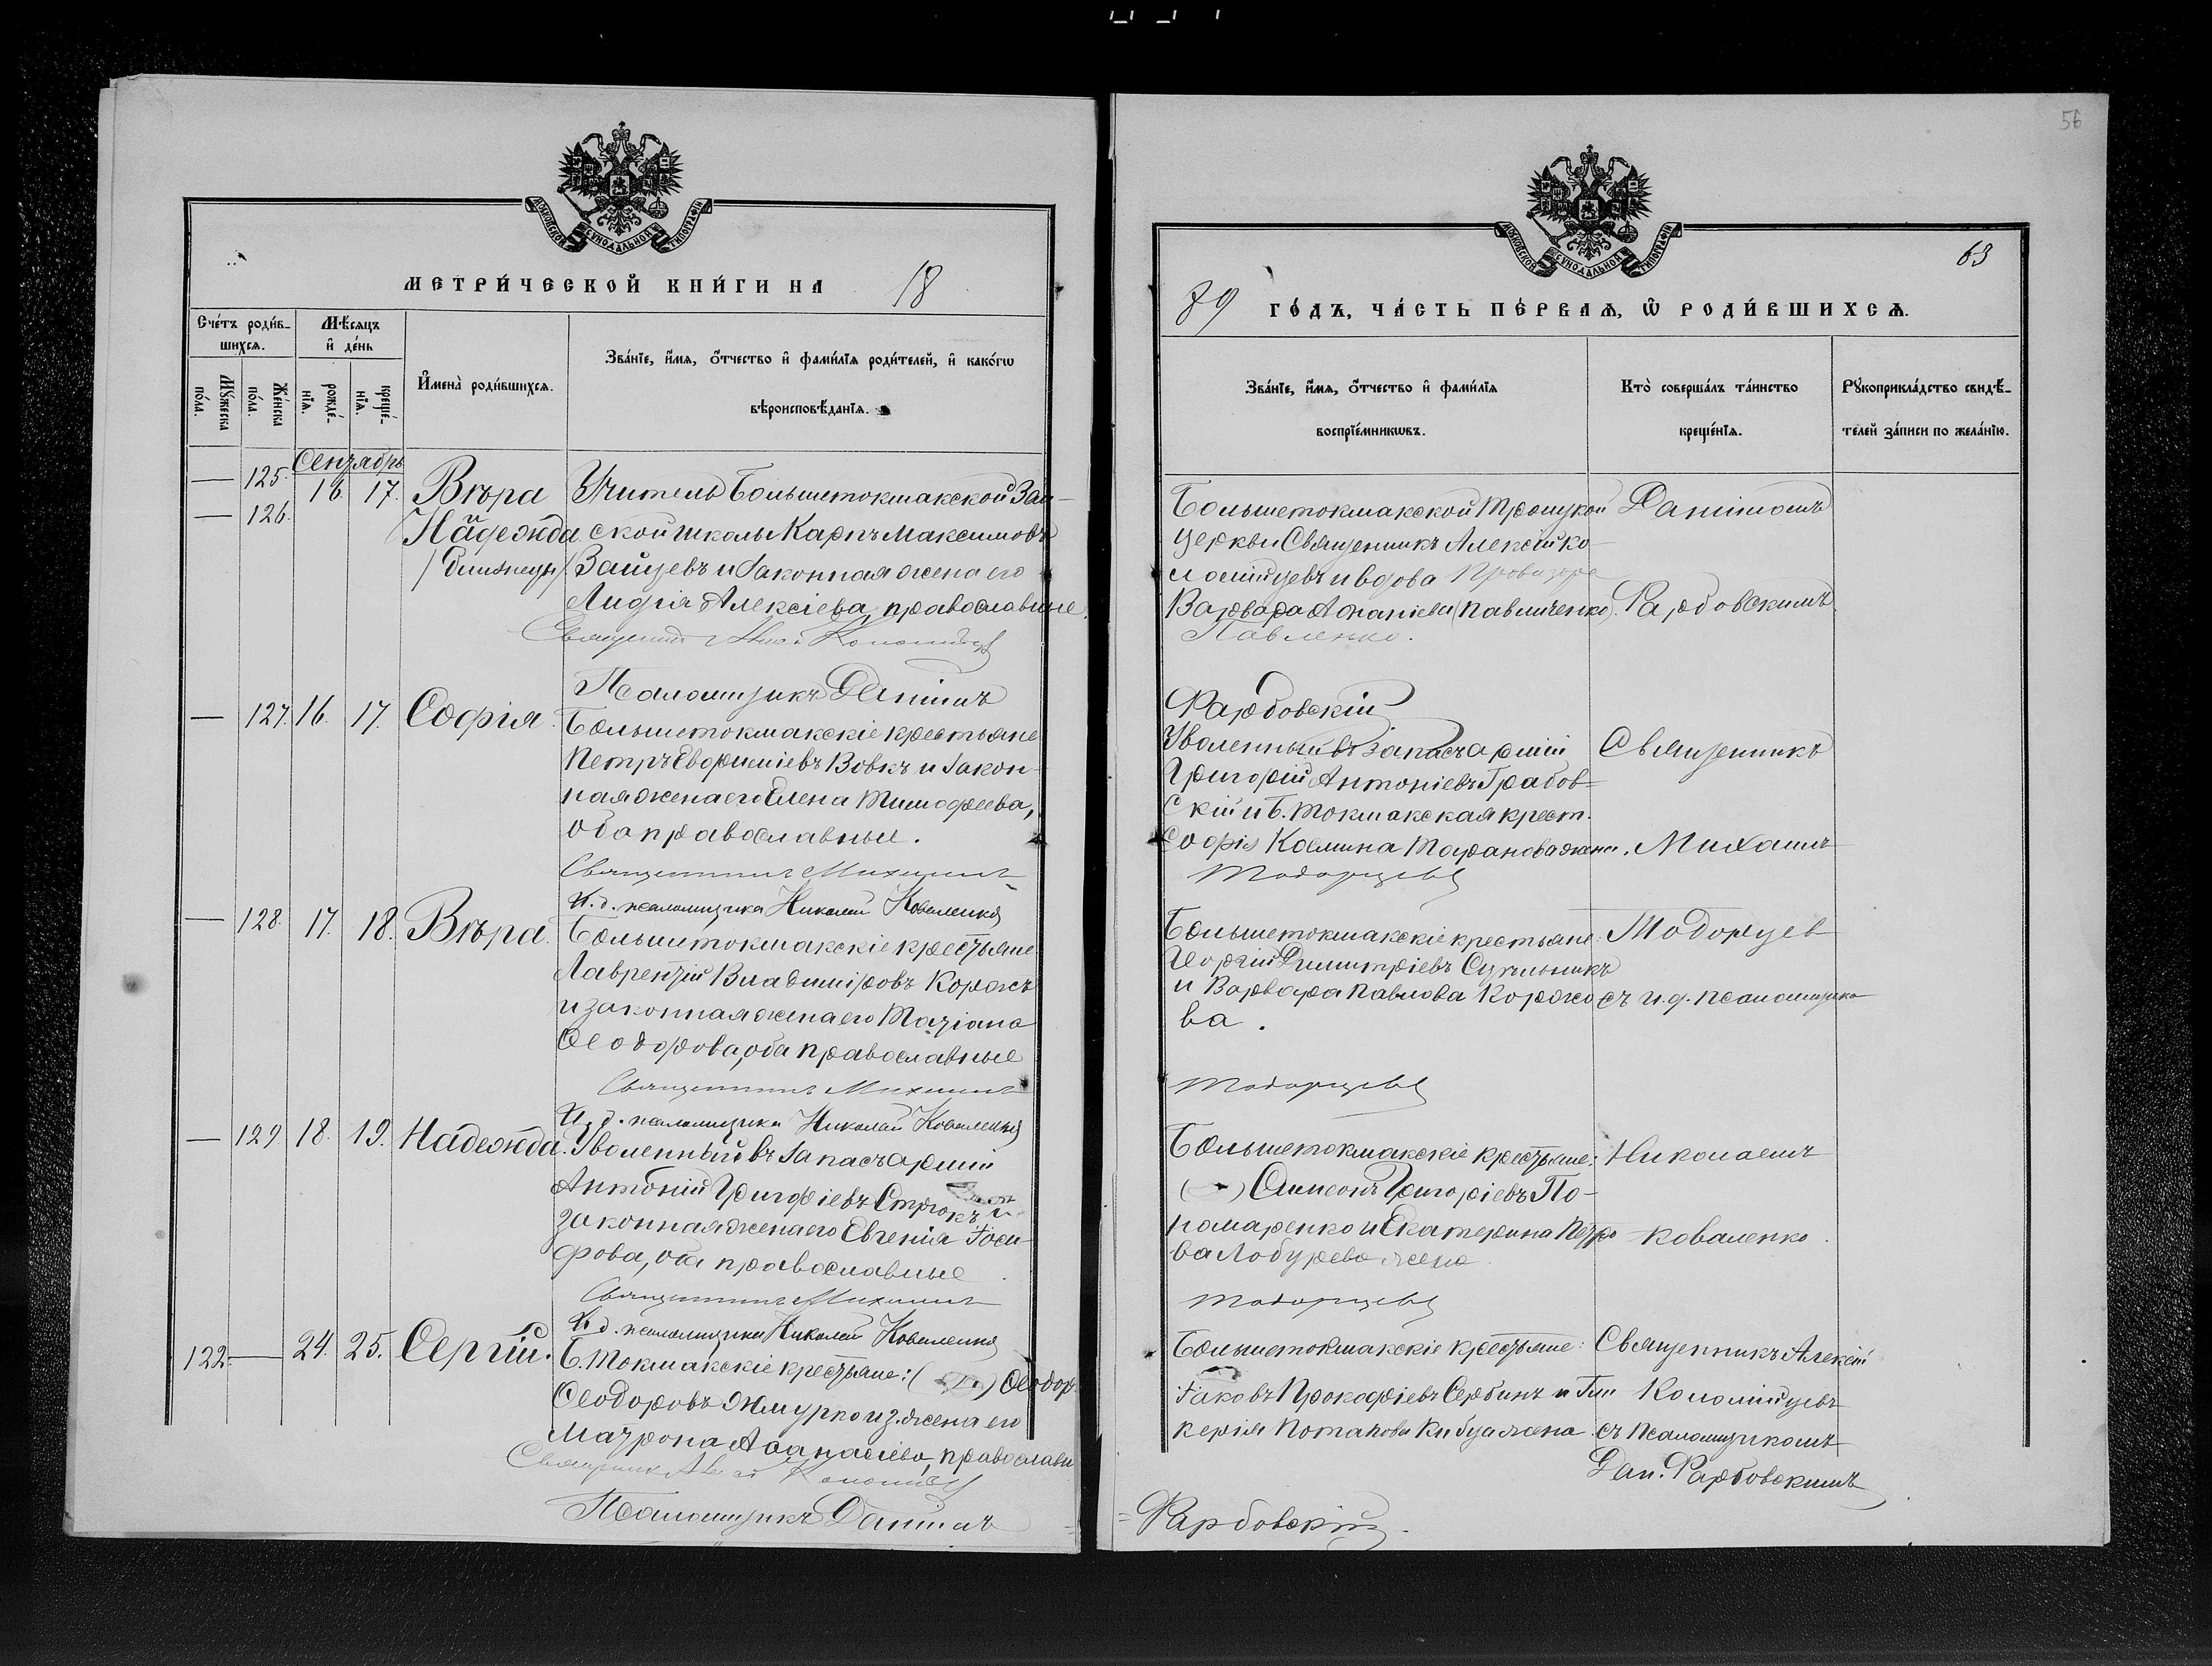 56
МОСКОВСКОЙ СУНОДАЛЬНОЙ ТИПОГРАФІИ
МЕТРИ́ЧЕСКОЙ КНИ́ГИ НА 18
Сче́тъ роди́в-
шихсѧ.
Мѣ́сѧцъ
и҆ де́нь
Мꙋ́жеска
по́ла.
Же́нска
по́ла.
рожде́-
нїѧ.
креще́-
нїѧ.
И҆мена̀ роди́вшихсѧ.
Зва́нїе, и҆́мѧ, ѻ҆́тчество и҆ фами́лїѧ роди́телей, и҆ како́гѡ
вѣроисповѣ́данїѧ.
Сентябрь
— 125. 16. 17. Вѣра
— 126. Надежда
/Близнецы/
Учитель Большетокмакской Зем-
ской школы Карпъ Максимовъ
Зайцевъ и законная жена его
Лидія Алексіева, православные.
Псаломщикъ Даніилъ
— 127. 16. 17. София.
Большетокмакскіе крестьяне
Петръ Евфиміевъ Вовкъ и закон-
ная жена его Елена Тимофеева,
оба православные.
Священникъ Михаилъ
И. д. псаломщика Николай Коваленко
— 128. 17. 18. Вѣра.
Большетокмакскіе крестьяне
Лаврентій Владиміровъ Коржъ
и законная жена его Татіана
Ѳеодорова, оба православные
Священникъ Михаилъ
И. д. псаломщика Николай Коваленко
— 129 18. 19. Надежда.
Уволенный въ запасъ арміи
Антоній Григоріевъ Строкъ и
законная жена его Евгенія Іоси-
фова, оба православные
Священникъ Михаилъ
И. д. псаломщика Николай Коваленко
122. — 24. 25. Сергій.
Б. Токмакскіе крестьяне: Ѳеодор
Ѳеодоровъ Жмурко и з. жена его
Матрона Аѳанасіева, православн
Псаломщикъ Даніилъ
МОСКОВСКОЙ СУНОДАЛЬНОЙ ТИПОГРАФІИ
63
89 ГО́ДЪ, ЧА́СТЬ ПЕ́РВАѦ, Ѡ҆ РОДИ́ВШИХСѦ.
Зва́нїе, и҆́мѧ, ѻ҆́тчество и҆ фами́лїѧ
воспрїе́мникѡвъ.
Кто̀ соверша́лъ та́инство
креще́нїѧ.
Рꙋкоприкла́дство свидѣ́-
телей за́писи по жела́нїю.
Большетокмакской Троицкой
церкви Священникъ Алексій Ко-
ломійцевъ и вдова провизора
Варвара Ананіева (Павличенко).
Павленко.
Даніиломъ
Фарбовскимъ
Фарбовскій
Уволенный въ запасъ арміи
Григорій Антоніевъ Грабов-
скій и Б. Токмакская крест.
Софія Космина Таранова жена.
Тодорцевъ
Священникъ
Михаилъ
Большетокмакскіе крестьяне:
Георгій Димитріевъ Сушильникъ
и Варвара Павлова Коржо
ва.
Тодорцевъ
Тодорцев
съ и. д. псаломщика
Большетокмакскіе крестьяне:
Симеонъ Григоріевъ По-
номаренко и Екатерина Петро
ва Лобурева жена.
Тодорцевъ
Николаемъ
Коваленко.
Большетокмакскіе крестьяне:
Іаковъ Прокофіевъ Сербинъ и Гли
керія Потапова Кибца жена.
Священникъ Алексій
Коломійцевъ
съ псаломщикомъ
Дан. Фарбовскимъ
Фарбовскій.